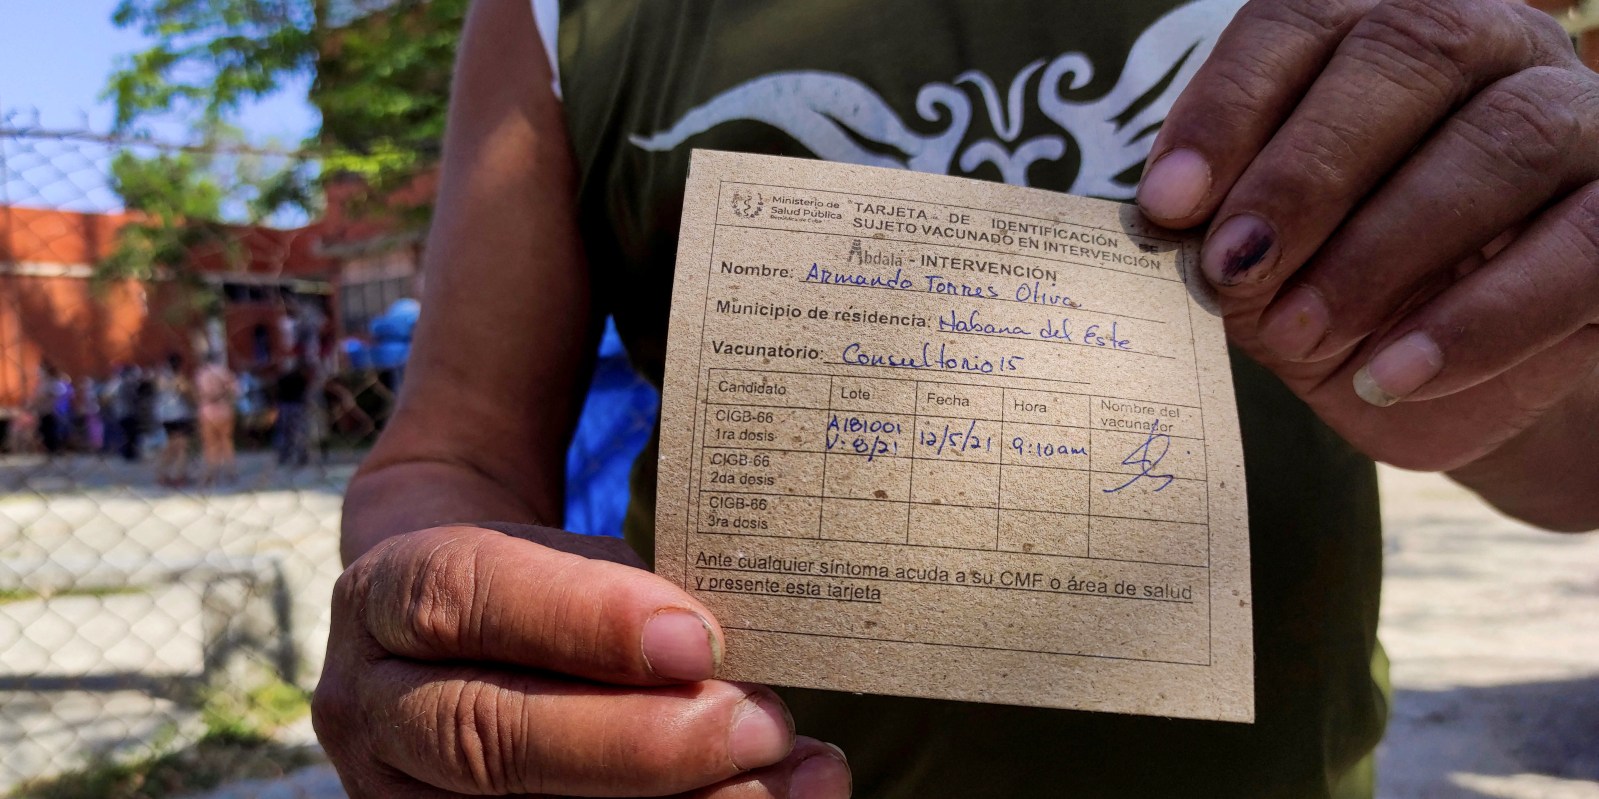 Ministerio de
Salud Pública
República de Cuba
TARJETA DE IDENTIFICACIÓN DE
SUJETO VACUNADO EN INTERVENCIÓN
Abdala - INTERVENCIÓN
Nombre: Armando Torres Oliva
Municipio de residencia: Habana del Este
Vacunatorio: Consultorio 15
Candidato Lote Fecha Hora Nombre del vacunador
CIGB-66
1ra dosis
A1B1001
V: 8/21
12/5/21 9:10am
CIGB-66
2da dosis
CIGB-66
3ra dosis
Ante cualquier síntoma acuda a su CMF o área de salud
y presente esta tarjeta